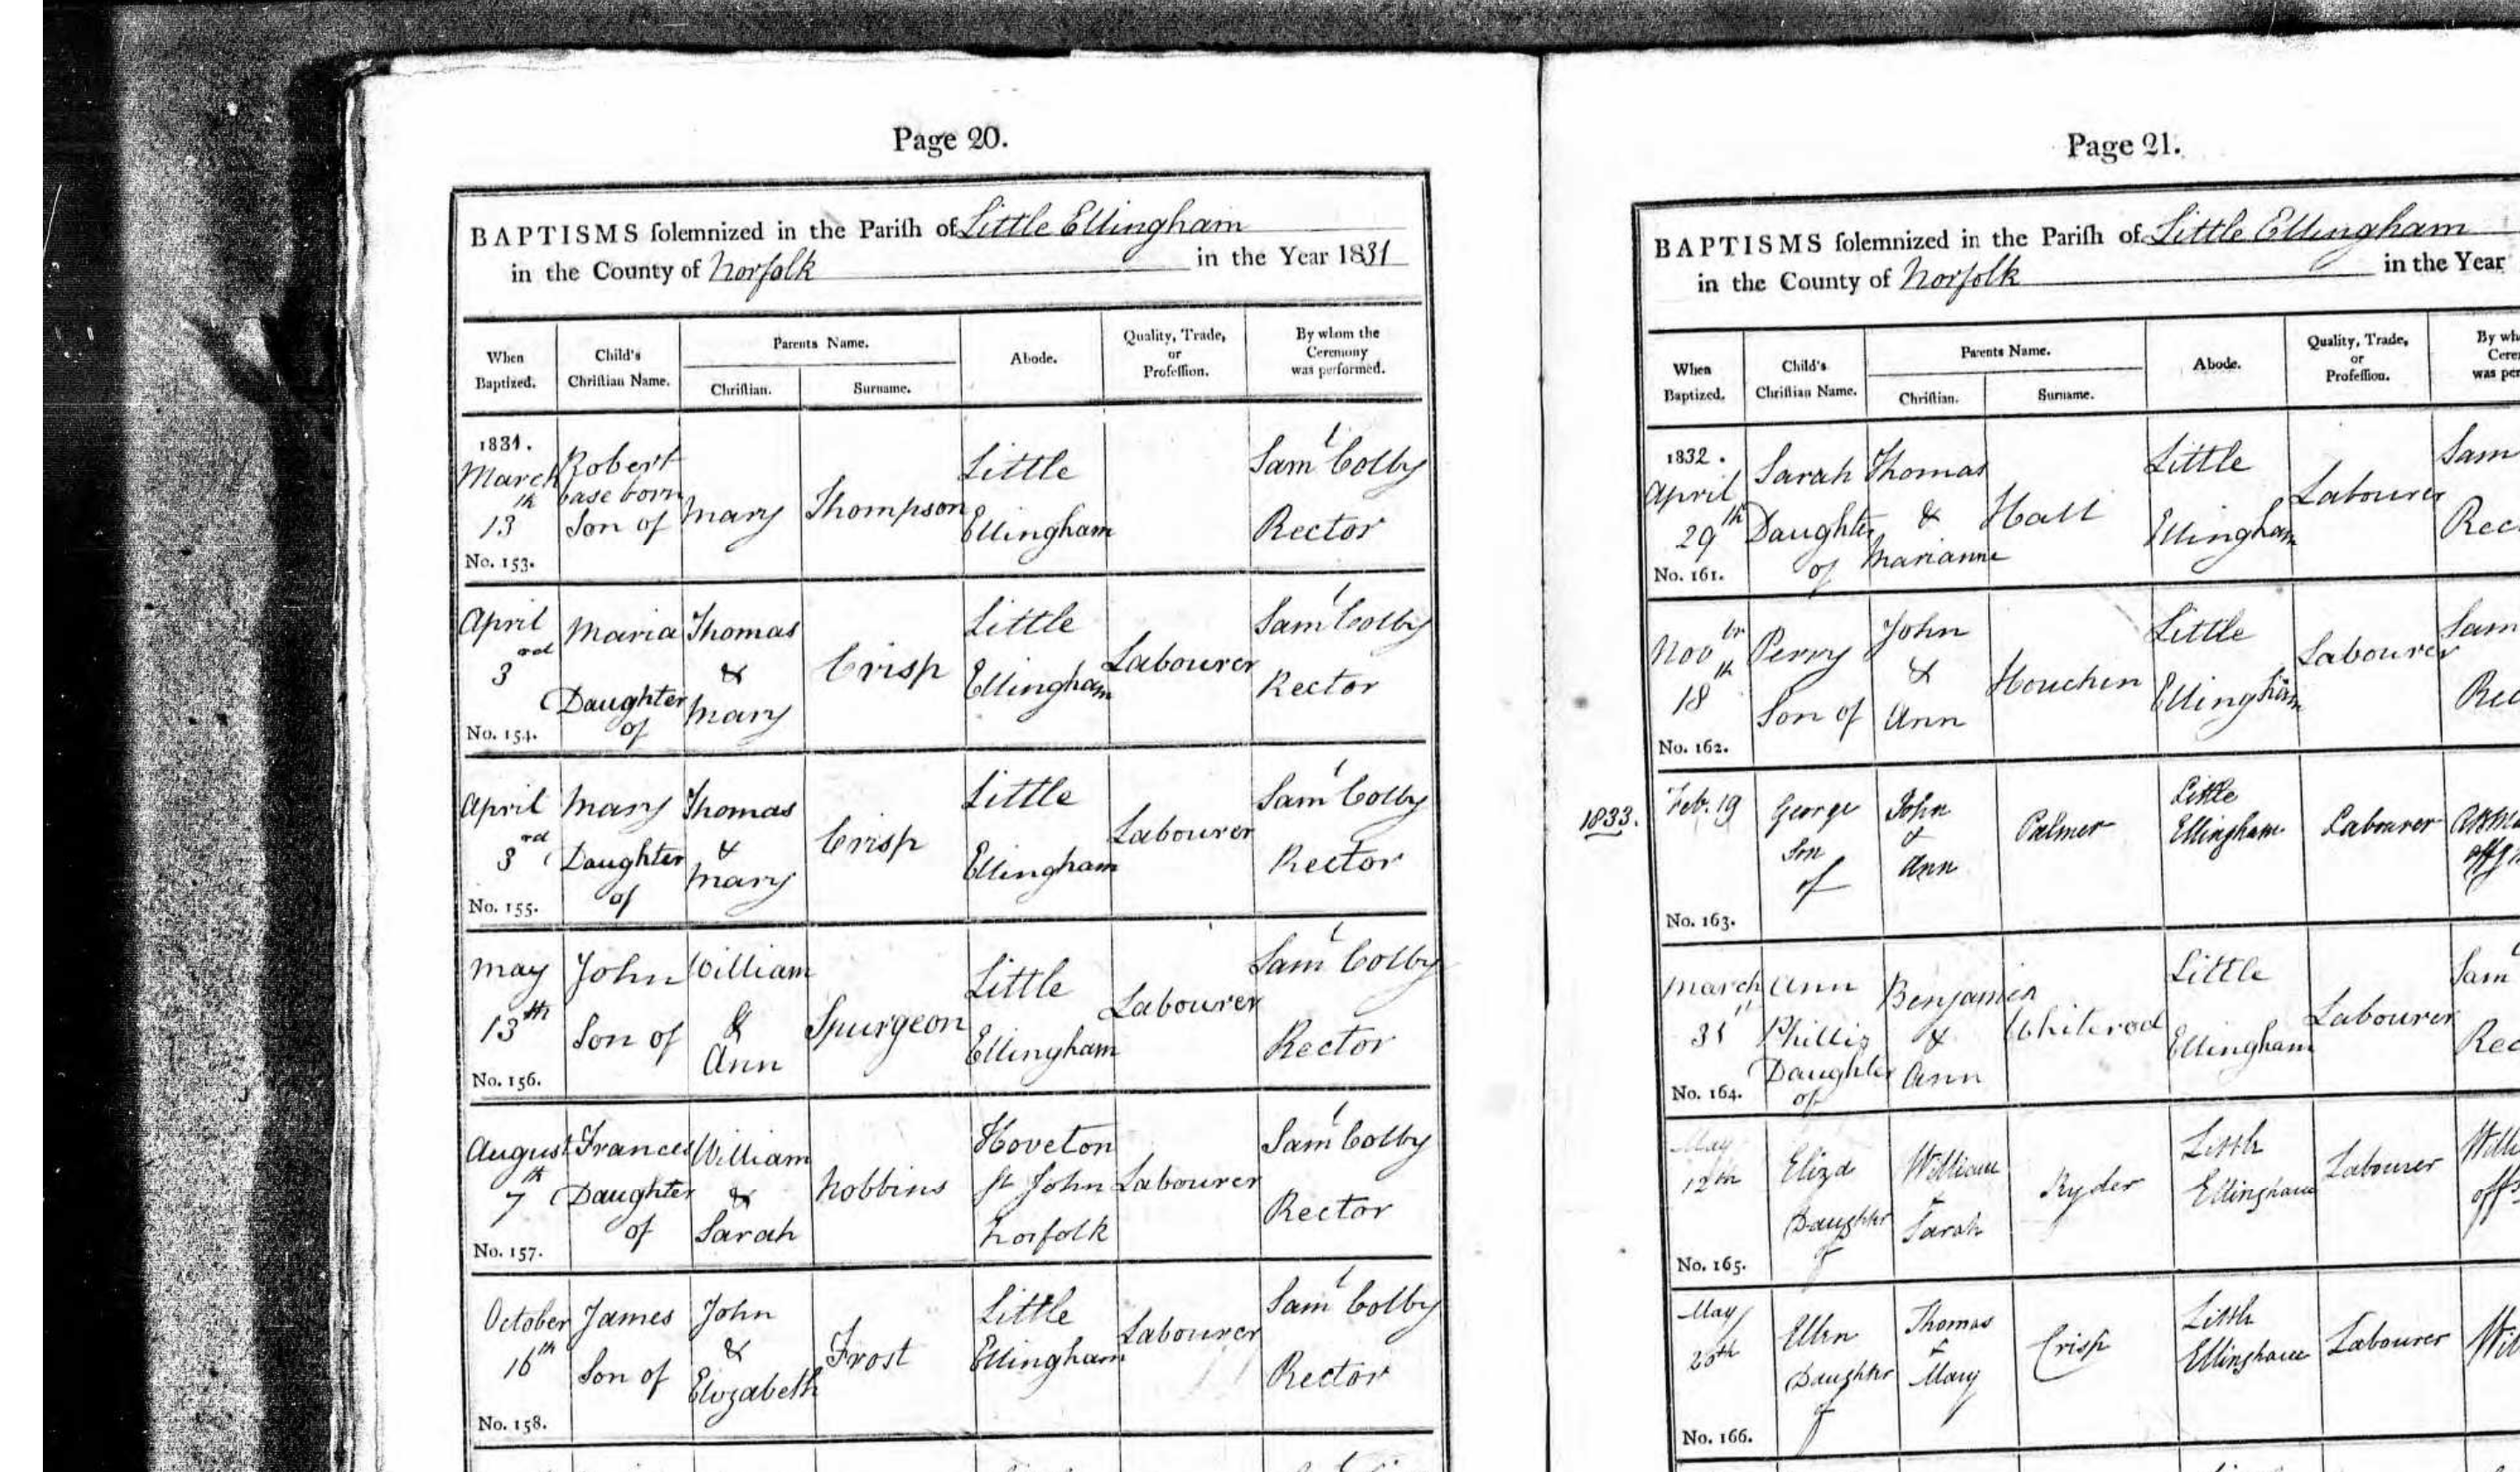 Page 20.
BAPTISMS solemnized in the Parish of Little Ellingham
in the County of Norfolk in the Year 1831
When Baptized. Child's Christian Name. Parents Name. Christian. Surname. Abode. Quality, Trade, or Profession. By whom the Ceremony was performed.
1831. March 13th No. 153. Robert base born Son of Mary Thompson Little Ellingham Saml Colby Rector
April 3rd No. 154. Maria Daughter of Thomas & Mary Crisp Little Ellingham Labourer Saml Colby Rector
April 3rd No. 155. Mary Daughter of Thomas & Mary Crisp Little Ellingham Labourer Saml Colby Rector
May 13th No. 156. John Son of William & Ann Spurgeon Little Ellingham Labourer Saml Colby Rector
August 7th No. 157. Frances Daughter of William & Sarah Nobbins Hoveton St John Norfolk Labourer Saml Colby Rector
October 16th No. 158. James Son of John & Elizabeth Frost Little Ellingham Labourer Saml Colby Rector
Page 21.
BAPTISMS solemnized in the Parish of Little Ellingham
in the County of Norfolk in the Year
When Baptized. Child's Christian Name. Parents Name. Christian. Surname. Abode. Quality, Trade, or Profession. By wh Cere was per
1832. April 29th No. 161. Sarah Daughter of Thomas & Marianne Hall Little Ellingham Labourer Sam Rec
Novbr 18th No. 162. Perry Son of John & Ann Houchen Little Ellingham Labourer Sam Rec
1833. Feb. 19 No. 163. George Son of John & Ann Palmer Little Ellingham Labourer
March 31st No. 164. Ann Phillis Daughter of Benjamin & Ann Whiterod Little Ellingham Labourer Sam Rec
May 12th No. 165. Eliza Daughter of William & Sarah Ryder Little Ellingham Labourer Will off
May 26th No. 166. Ellen Daughter of Thomas & Mary Crisp Little Ellingham Labourer Wil